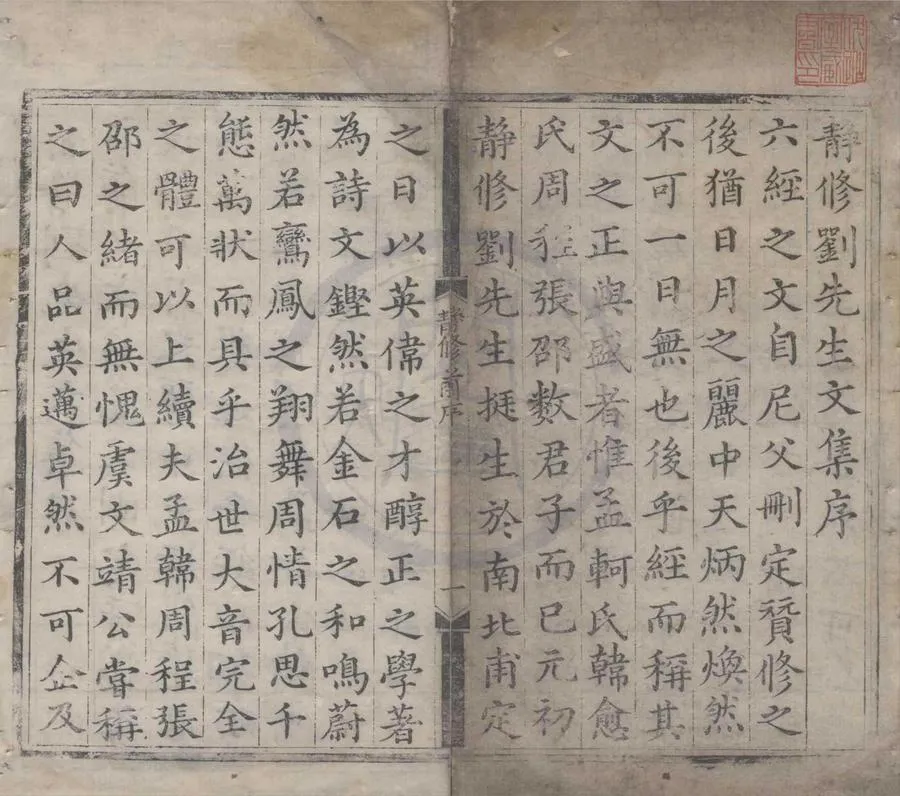 靜修劉先生文集序
六經之文自尼父刪定贊修之
後猶日月之麗中天炳然煥然
不可一日無也後乎經而稱其
文之正與盛者惟孟軻氏韓愈
氏周程張邵数君子而已元初
靜修劉先生挺生於南北甫定
靜修 序 一
之日以英偉之才醇正之學著
為詩文鏗然若金石之和鳴蔚
然若鸞鳳之翔舞周情孔思千
態萬狀而具乎治世大音完全
之體可以上續夫孟韓周程張
邵之緒而無愧虞文靖公嘗稱
之曰人品英邁卓然不可企及